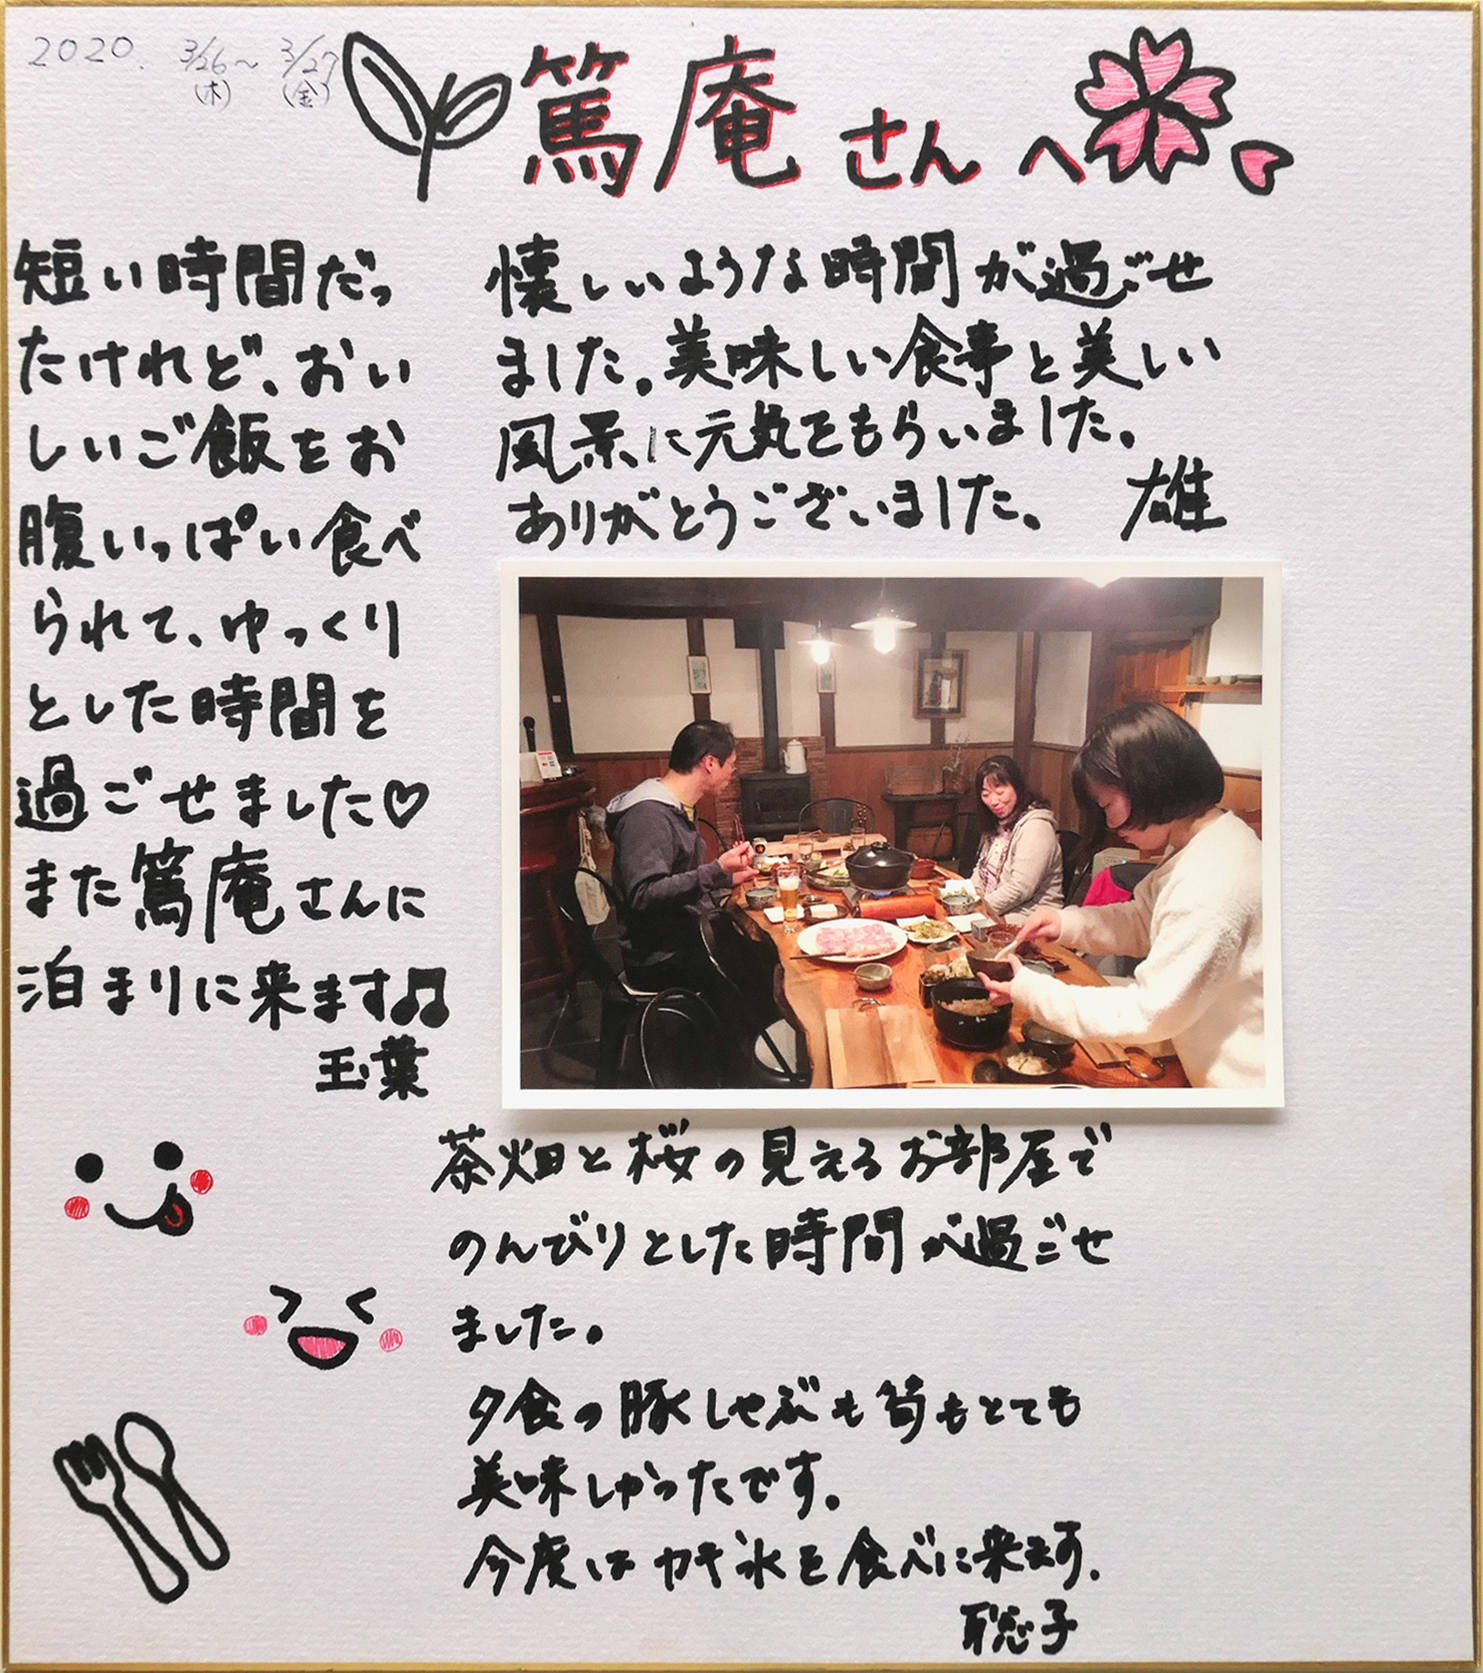 2020. 3/26～3/27
(木) (金)
篤庵さんへ
短い時間だっ
たけれど、おい
しいご飯をお
腹いっぱい食べ
られて、ゆっくり
とした時間を
過ごせました♡
また篤庵さんに
泊まりに来ます♫
玉葉
懐しいような時間が過ごせ
ました。美味しい食事と美しい
風景に元気をもらいました。
ありがとうございました。 雄
茶畑と桜の見えるお部屋で
のんびりとした時間が過ごせ
ました。
夕食の豚しゃぶも筍もとても
美味しかったです。
今度はカキ氷を食べに来ます。
聡子